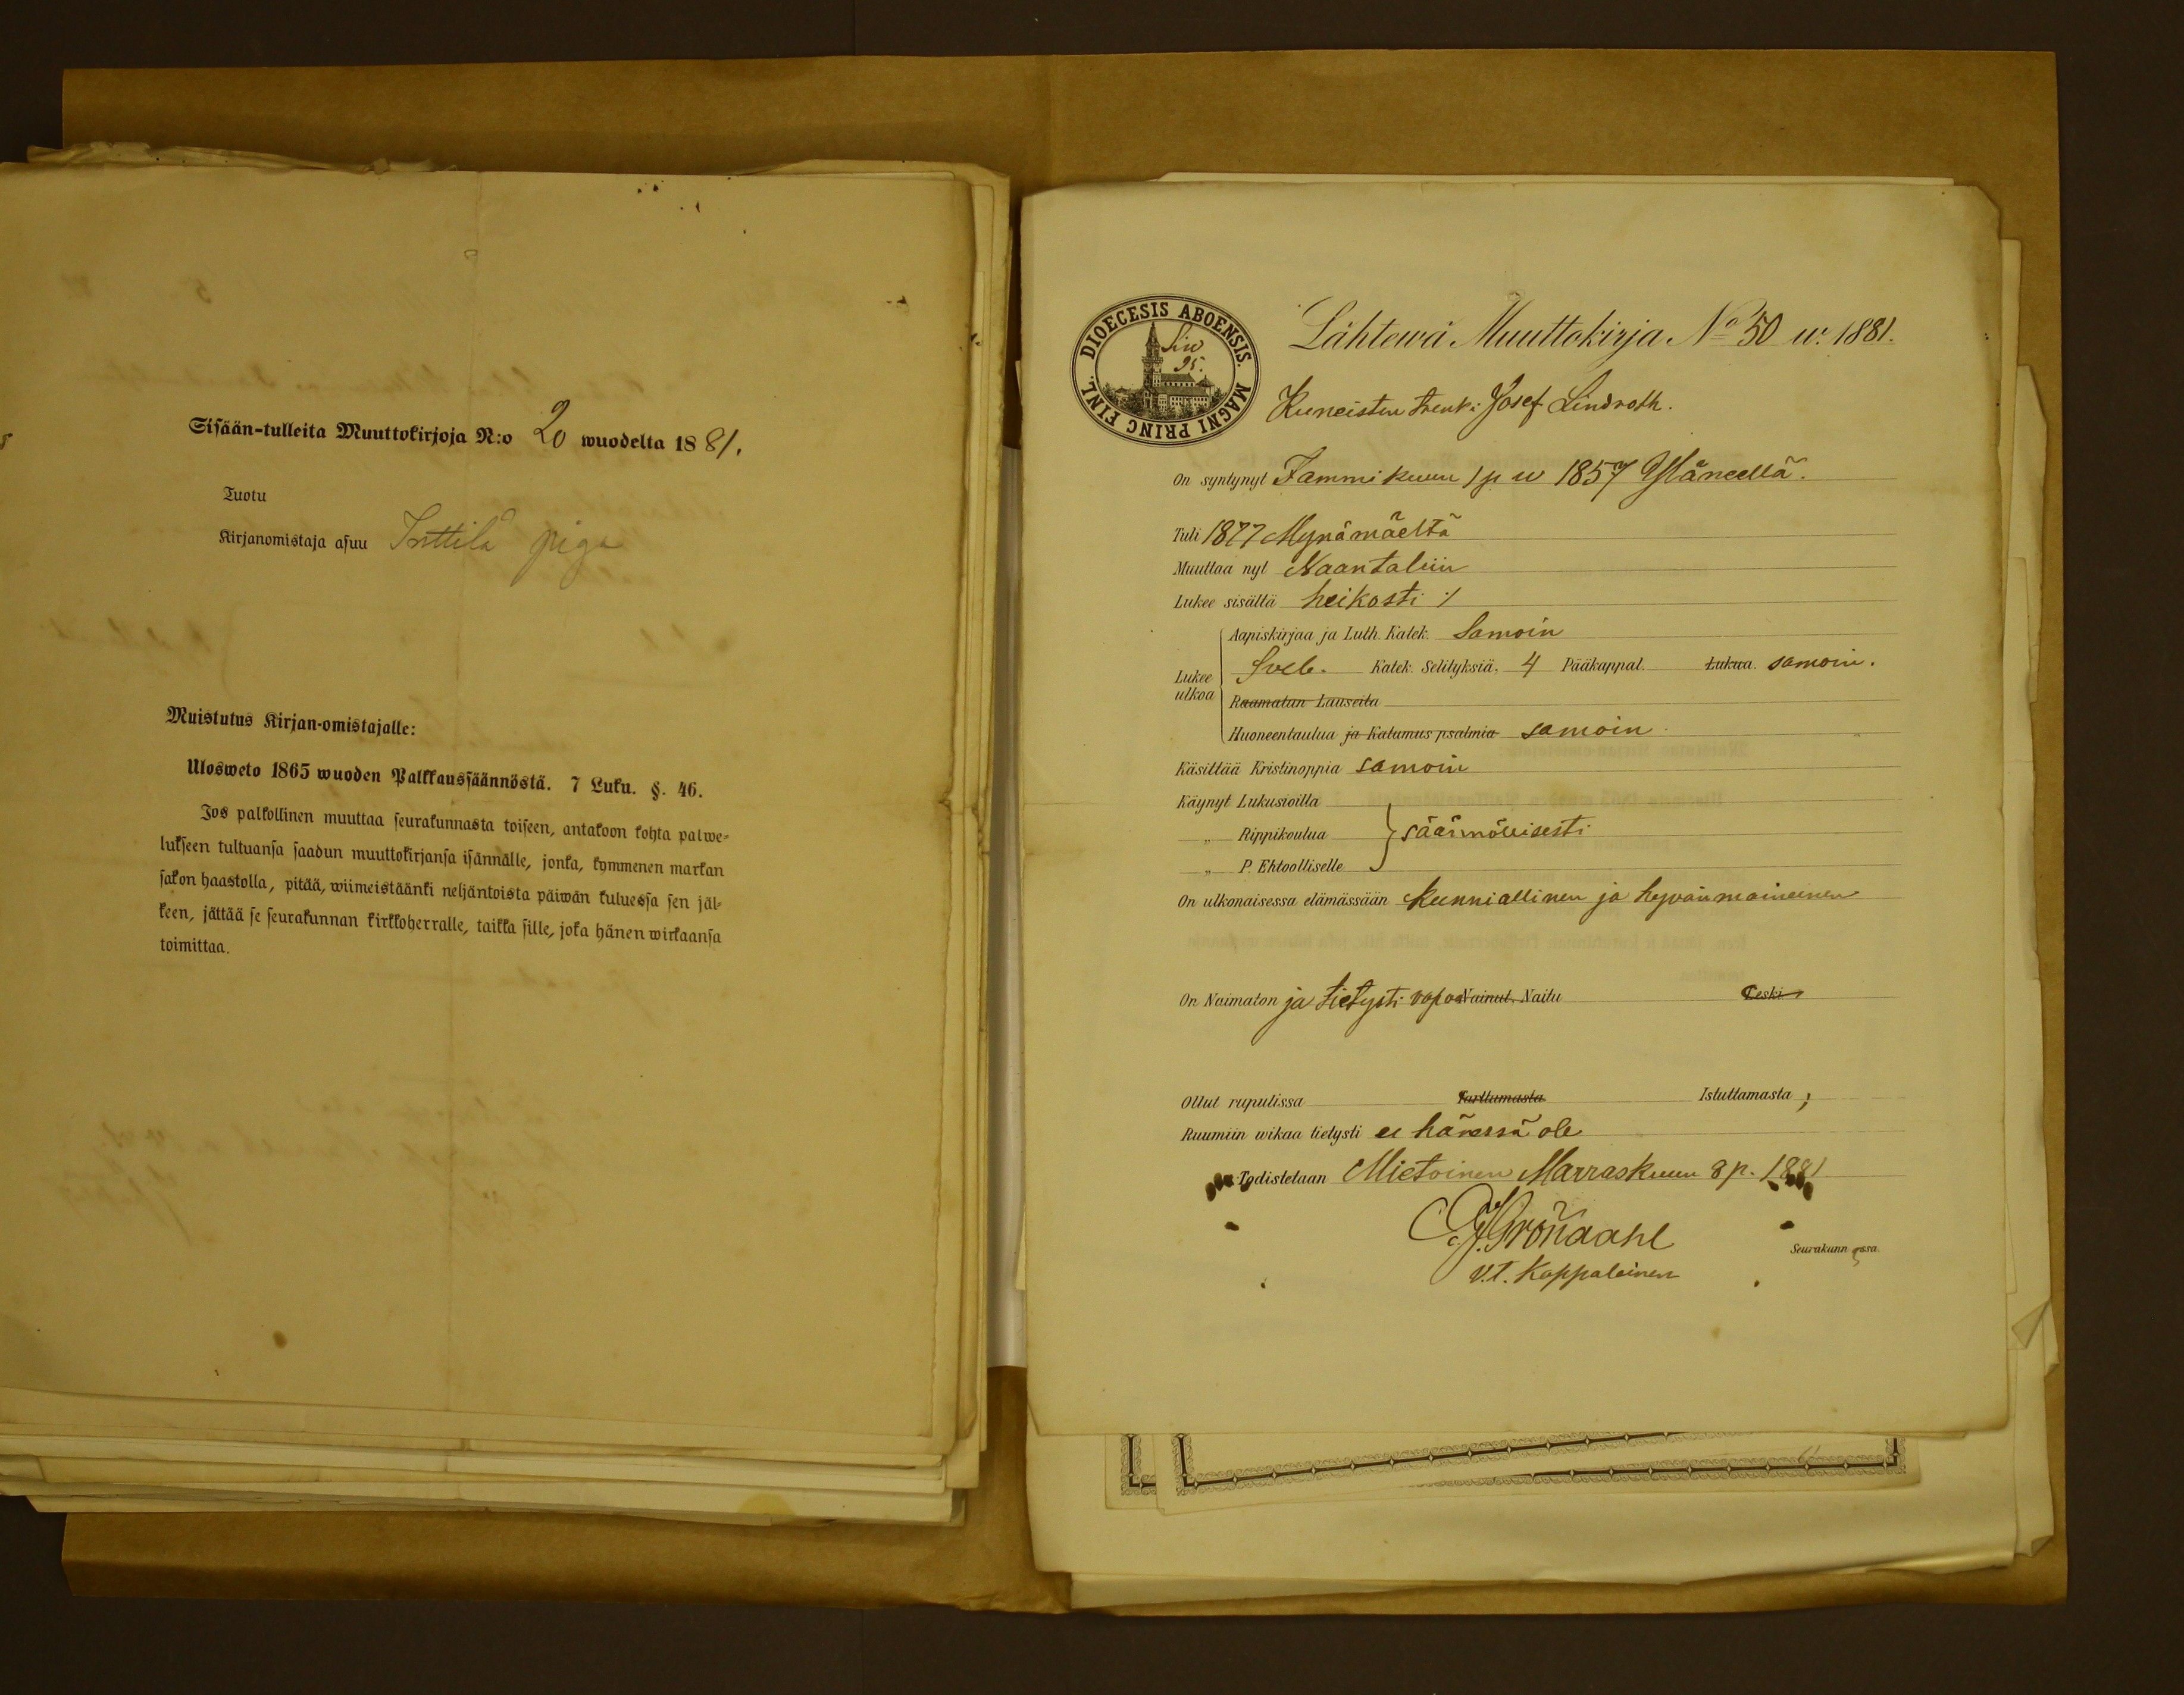 Sisään-tulleita Muuttokirjoja N:o 20 wuodelta 1881.
Tuotu
Kirjanomistaja asuu Inttilä piga
Muistutus Kirjan-omistajalle:
Ulosweto 1865 wuoden Palkkaussäännöstä. 7 Luku. §. 46.
Jos palkollinen muuttaa seurakunnasta toiseen, antakoon kohta palwe-
lukseen tultuansa saadun muuttokirjansa isännälle, jonka, kymmenen markan
sakon haastolla, pitää, wiimeistäänki neljäntoista päiwän kuluessa sen jäl-
keen, jättää se seurakunnan kirkkoherralle, taikka sille, joka hänen wirkaansa
toimittaa.
DIOECESIS ABOENSIS. MAGNI PRINC FINL.
Siw
95.
Lähtewä Muuttokirja No 50 w. 1881.
trenki Josef Lindroth.
On syntynyt Tammikuun 1 p w 1857 Yläneellä.
Tuli 1877 Mynämäeltä
Muuttaa nyt Naantaliin
Lukee sisältä heikosti
Aapiskirjaa ja Luth. Katek. Samoin
Lukee ulkoa
Sveb. Katek. Selityksiä, 4 Pääkappal. Lukua. samoin.
Raamatun Lauseita
Huoneentaulua ja Katumus psalmia samoin
Käsittää Kristinoppia samoin
Käynyt Lukusioilla
„ Rippikoulua säännöllisesti
„ P. Ehtoolliselle
On ulkonaisessa elämässään kunniallinen ja hyvänmaineinen
On Naimaton ja tietysti vapaa Nainut, Naitu Leski
Ollut rupulissa Tarttumasta Istuttamasta ;
Ruumiin wikaa tietysti ei hänessä ole
Todistetaan Mietoinen Marraskuun 8 p. 1881
Gröndahl
Seurakunn ssa.
v.t. Kappalainen